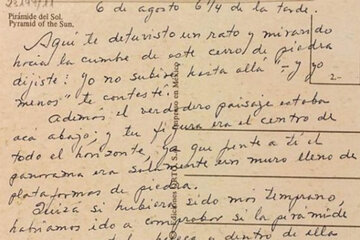 Pirámide del Sol.
Pyramid of the Sun.
6 de agosto 6¼ de la tarde.
Aquí te detuviste un rato y mirando
hacia la cumbre de este cerro de piedra
dijiste: Yo no subiré hasta allá" – y yo
menos" te contesté.
Además el verdadero paisaje estaba
acá abajo; y tu figura era el centro de
todo el horizonte, ya que frente a tí el
panorama era solamente un muro lleno de
plataformas de piedra.
Quizá si hubiera sido mas temprano,
habríamos ido a comprobar si la pirámide
dentro de ella
Impreso en México